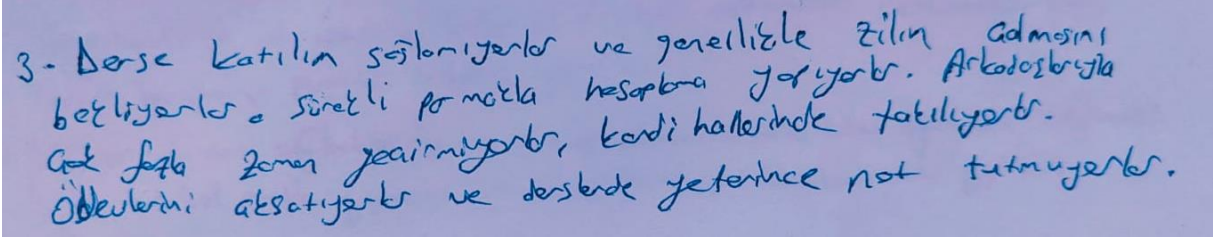 3- Derse katılım sağlamıyorlar ve genellikle zilin çalmasını
bekliyorlar. Sürekli parmakla hesaplama yapıyorlar. Arkadaşlarıyla
çok fazla zaman geçirmiyorlar, kendi hallerinde takılıyorlar.
Ödevlerini aksatıyorlar ve derslerde yeterince not tutmuyorlar.